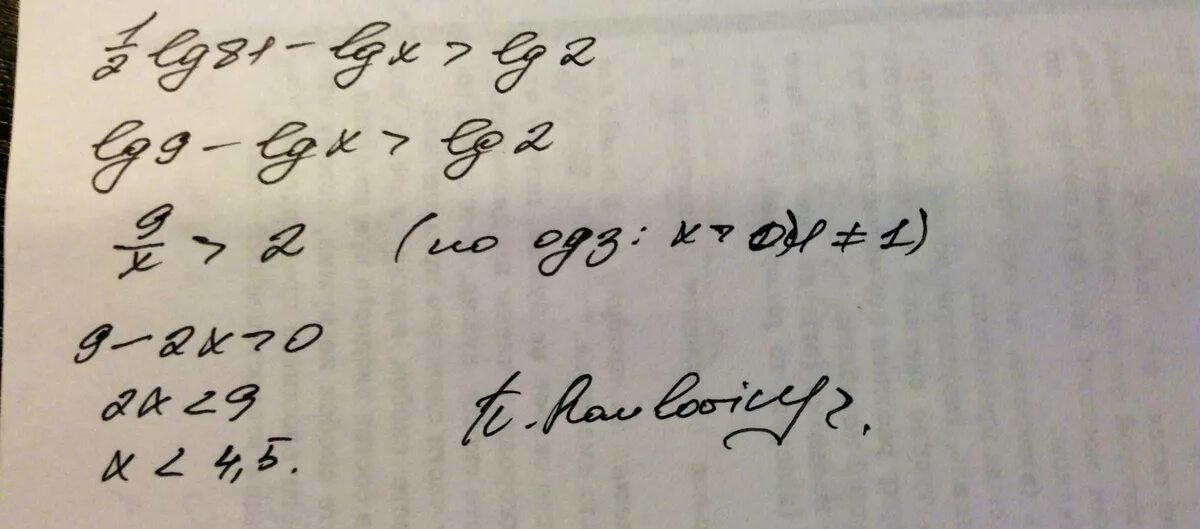 ½ lg 81 - lg x > lg 2
lg 9 - lg x > lg 2
9/x > 2 (по одз: x > 0, x ≠ 1)
9 - 2x > 0
2x < 9
x < 4,5.